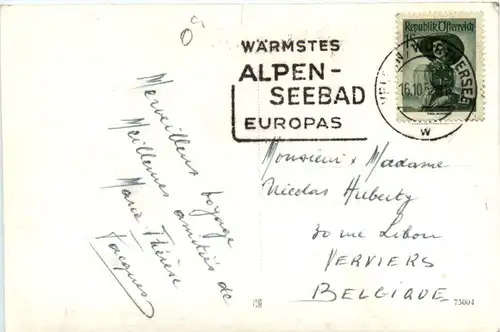 WÄRMSTES
ALPEN-
SEEBAD
EUROPAS
Republik Österreich
16.10.
w
Merveilleux voyage
Meilleures amitiés de
Marie Thérèse
Jacques
Monsieur & Madame
Nicolas Huberty
30 rue
VERVIERS
BELGIQUE
73004